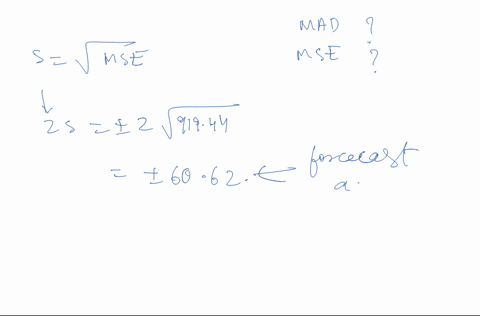 MAD ?
S = √MSE MSE ?
↓
2S = ± 2 √919.44
= ± 60.62. ← forecast
a.